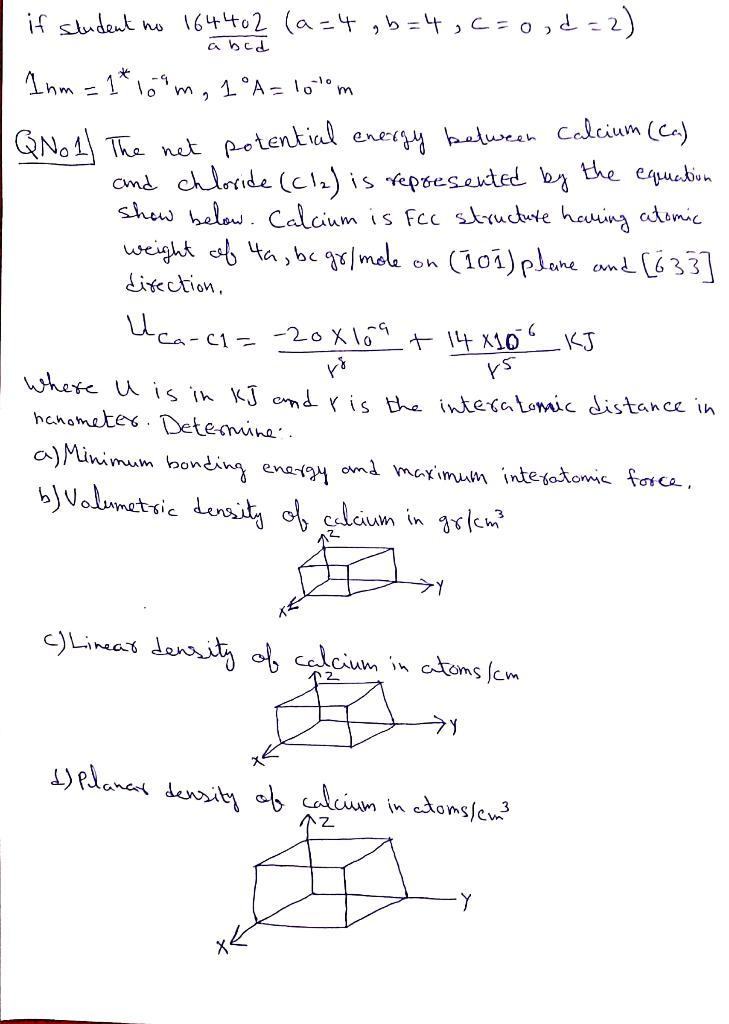 if student no 164402 (a=4, b=4, c=0, d=2)
abcd
1nm = 1*10⁻⁹m, 1°A = 10⁻¹⁰m
QNo1) The net potential energy between Calcium (Ca)
and chloride (Cl2) is represented by the equation
show below. Calcium is FCC structure having atomic
weight of 4a, bc gr/mole on (1̄01̄) plane and [6̄33̄]
direction.
U Ca-Cl = -20X10⁻⁹/r⁸ + 14X10⁻⁶/r⁵ KJ
Where U is in KJ and r is the interatomic distance in
nanometer. Determine:.
a) Minimum bonding energy and maximum interatomic force.
b) Volumetric density of calcium in gr/cm³
Z
Y
X
c) Linear density of calcium in atoms/cm
Z
Y
X
d) Planar density of calcium in atoms/cm³
Z
Y
X